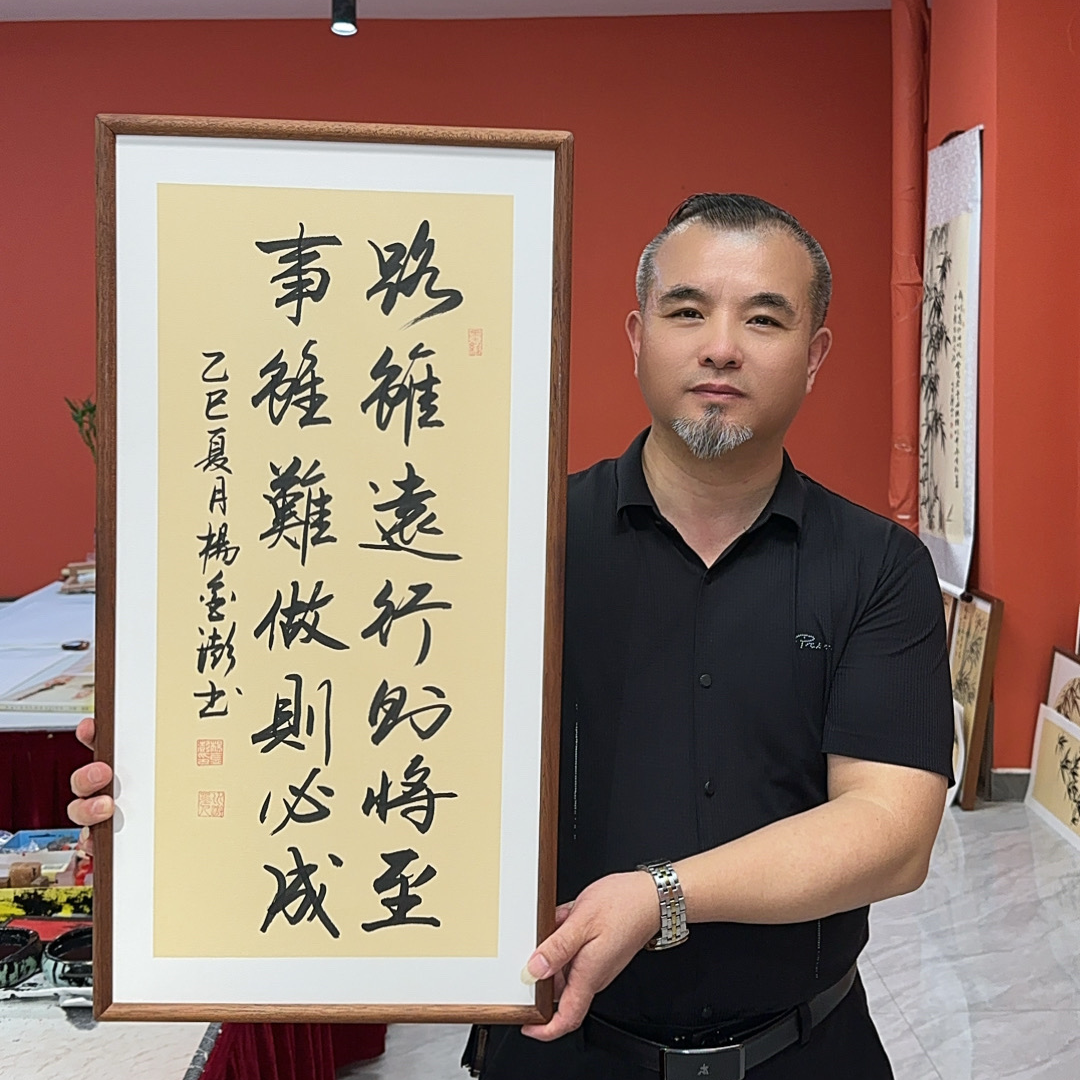 路雖遠行則將至
事雖難做則必成
乙巳夏月楊金澎书